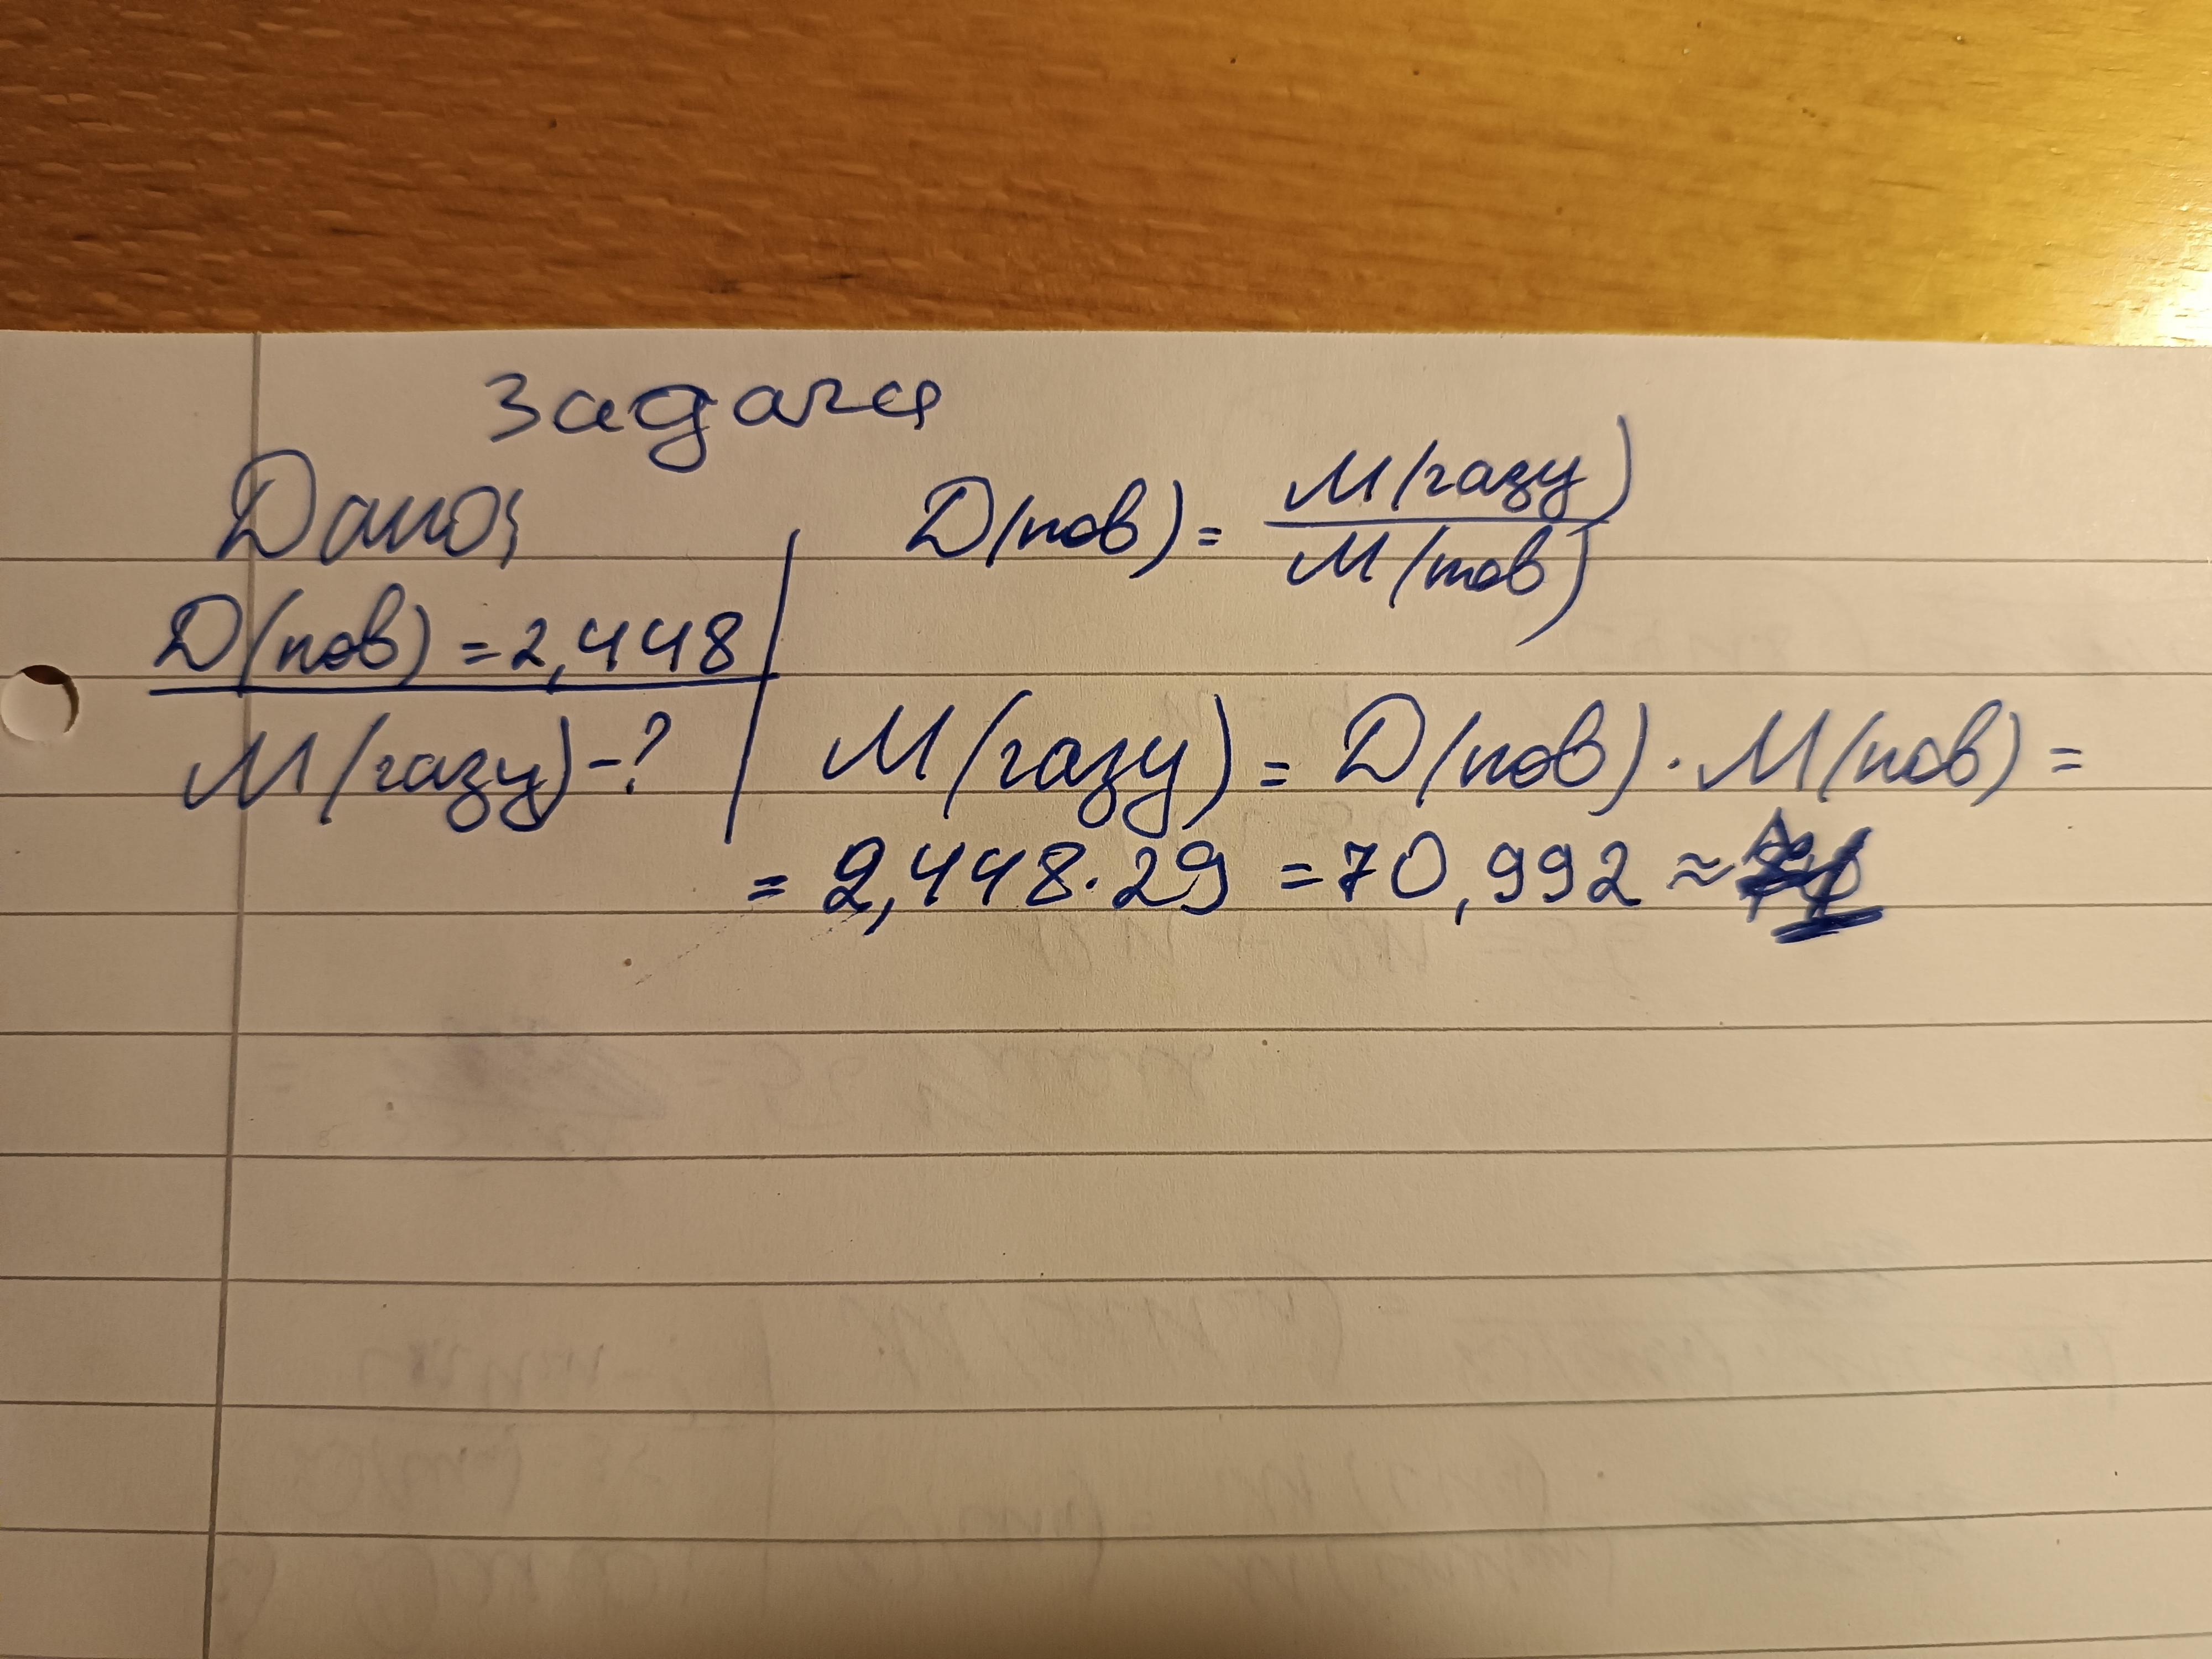 Задача
Дано:
D(пов) = 2,448
M(газу) - ?
D(пов) = M(газу) / M(пов)
M(газу) = D(пов) · M(пов) =
= 2,448 · 29 = 70,992 ≈